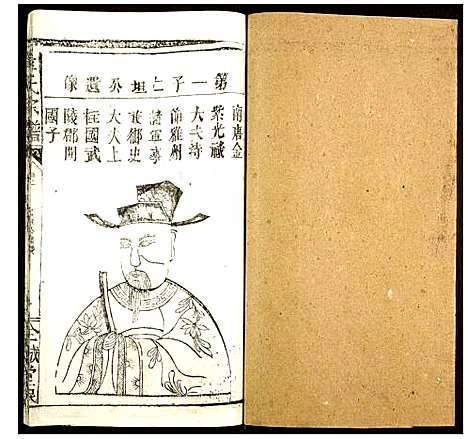 第一子仁坦公遺像
南唐金
紫光祿
大夫持
節雍州
諸軍事
兼御史
大夫上
柱國武
陵郡開
國子
氏宗譜